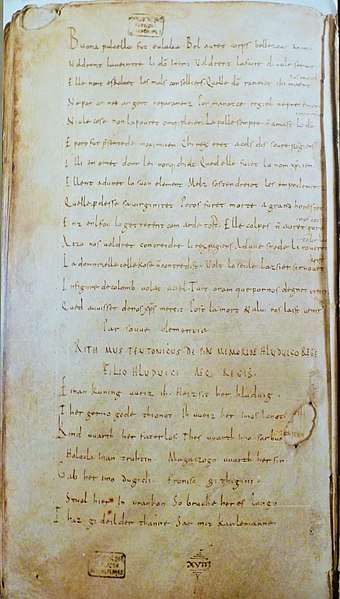 Buona pulcella fut eulalia. Bel auret corps bellezour anima
Voldrent laueintre li dō Inimi. Voldrent lafaire diaule seruir
Elle nont eskoltet les mals conselliers. Quelle dō raneiet chi maent
sus en ciel.
Neporor ned argent neparamenz. Por manatce regiel nepreiement.
Niule cose non lapouret omq; pleier. La polle sempre nō amast lo dō
Eporo fut presentede maximiien. Chi rex eret acels dis soure pagiens
Illi enortet dont lei nonq; chielt. Qued elle fuiet lo nom xp̄iien
Ellent adunet lo suon element. Melz sostendreiet les empedementz
Quelle perdesse sa uirginitet. Poros furet morte a grand honestet
Enz enlfou lagetterent com arde tost. Elle colpes nō auret poro
nos coist
Aczo nos uoldret concreidre li rex pagiens. Ad une spede li roueret
La domnizelle celle kose nō contredist. Volt lo seule lazsier si ruouet
Infigure decolomb uolat aciel. Tuit oram que por nos degnet preier
Qued auuisset de nos xr̄s mercit. Post la mort & alui nos laist uenir
Par souue clementia
RITHMUS TEUTONICUS DE PIAE MEMORIAE HLUDUICO REGE
FILIO HLUDUICI AEQ; REGIS.
Einan kuning uueiz ih. Heizsit her hluduig.
Ther gerno gode thionot. Ih uueiz her imos lonot
Kind uuarth her faterlos. Thes uuarth imo sar buoz
Holoda inan truhtin Magaczogo uuarth her sin
Gab her imo dugidi. Fronisc githigini.
Stuol hier In urankon. So bruche her es lango
Thaz gideilder thanne Sar mit karlemanne
XVIII